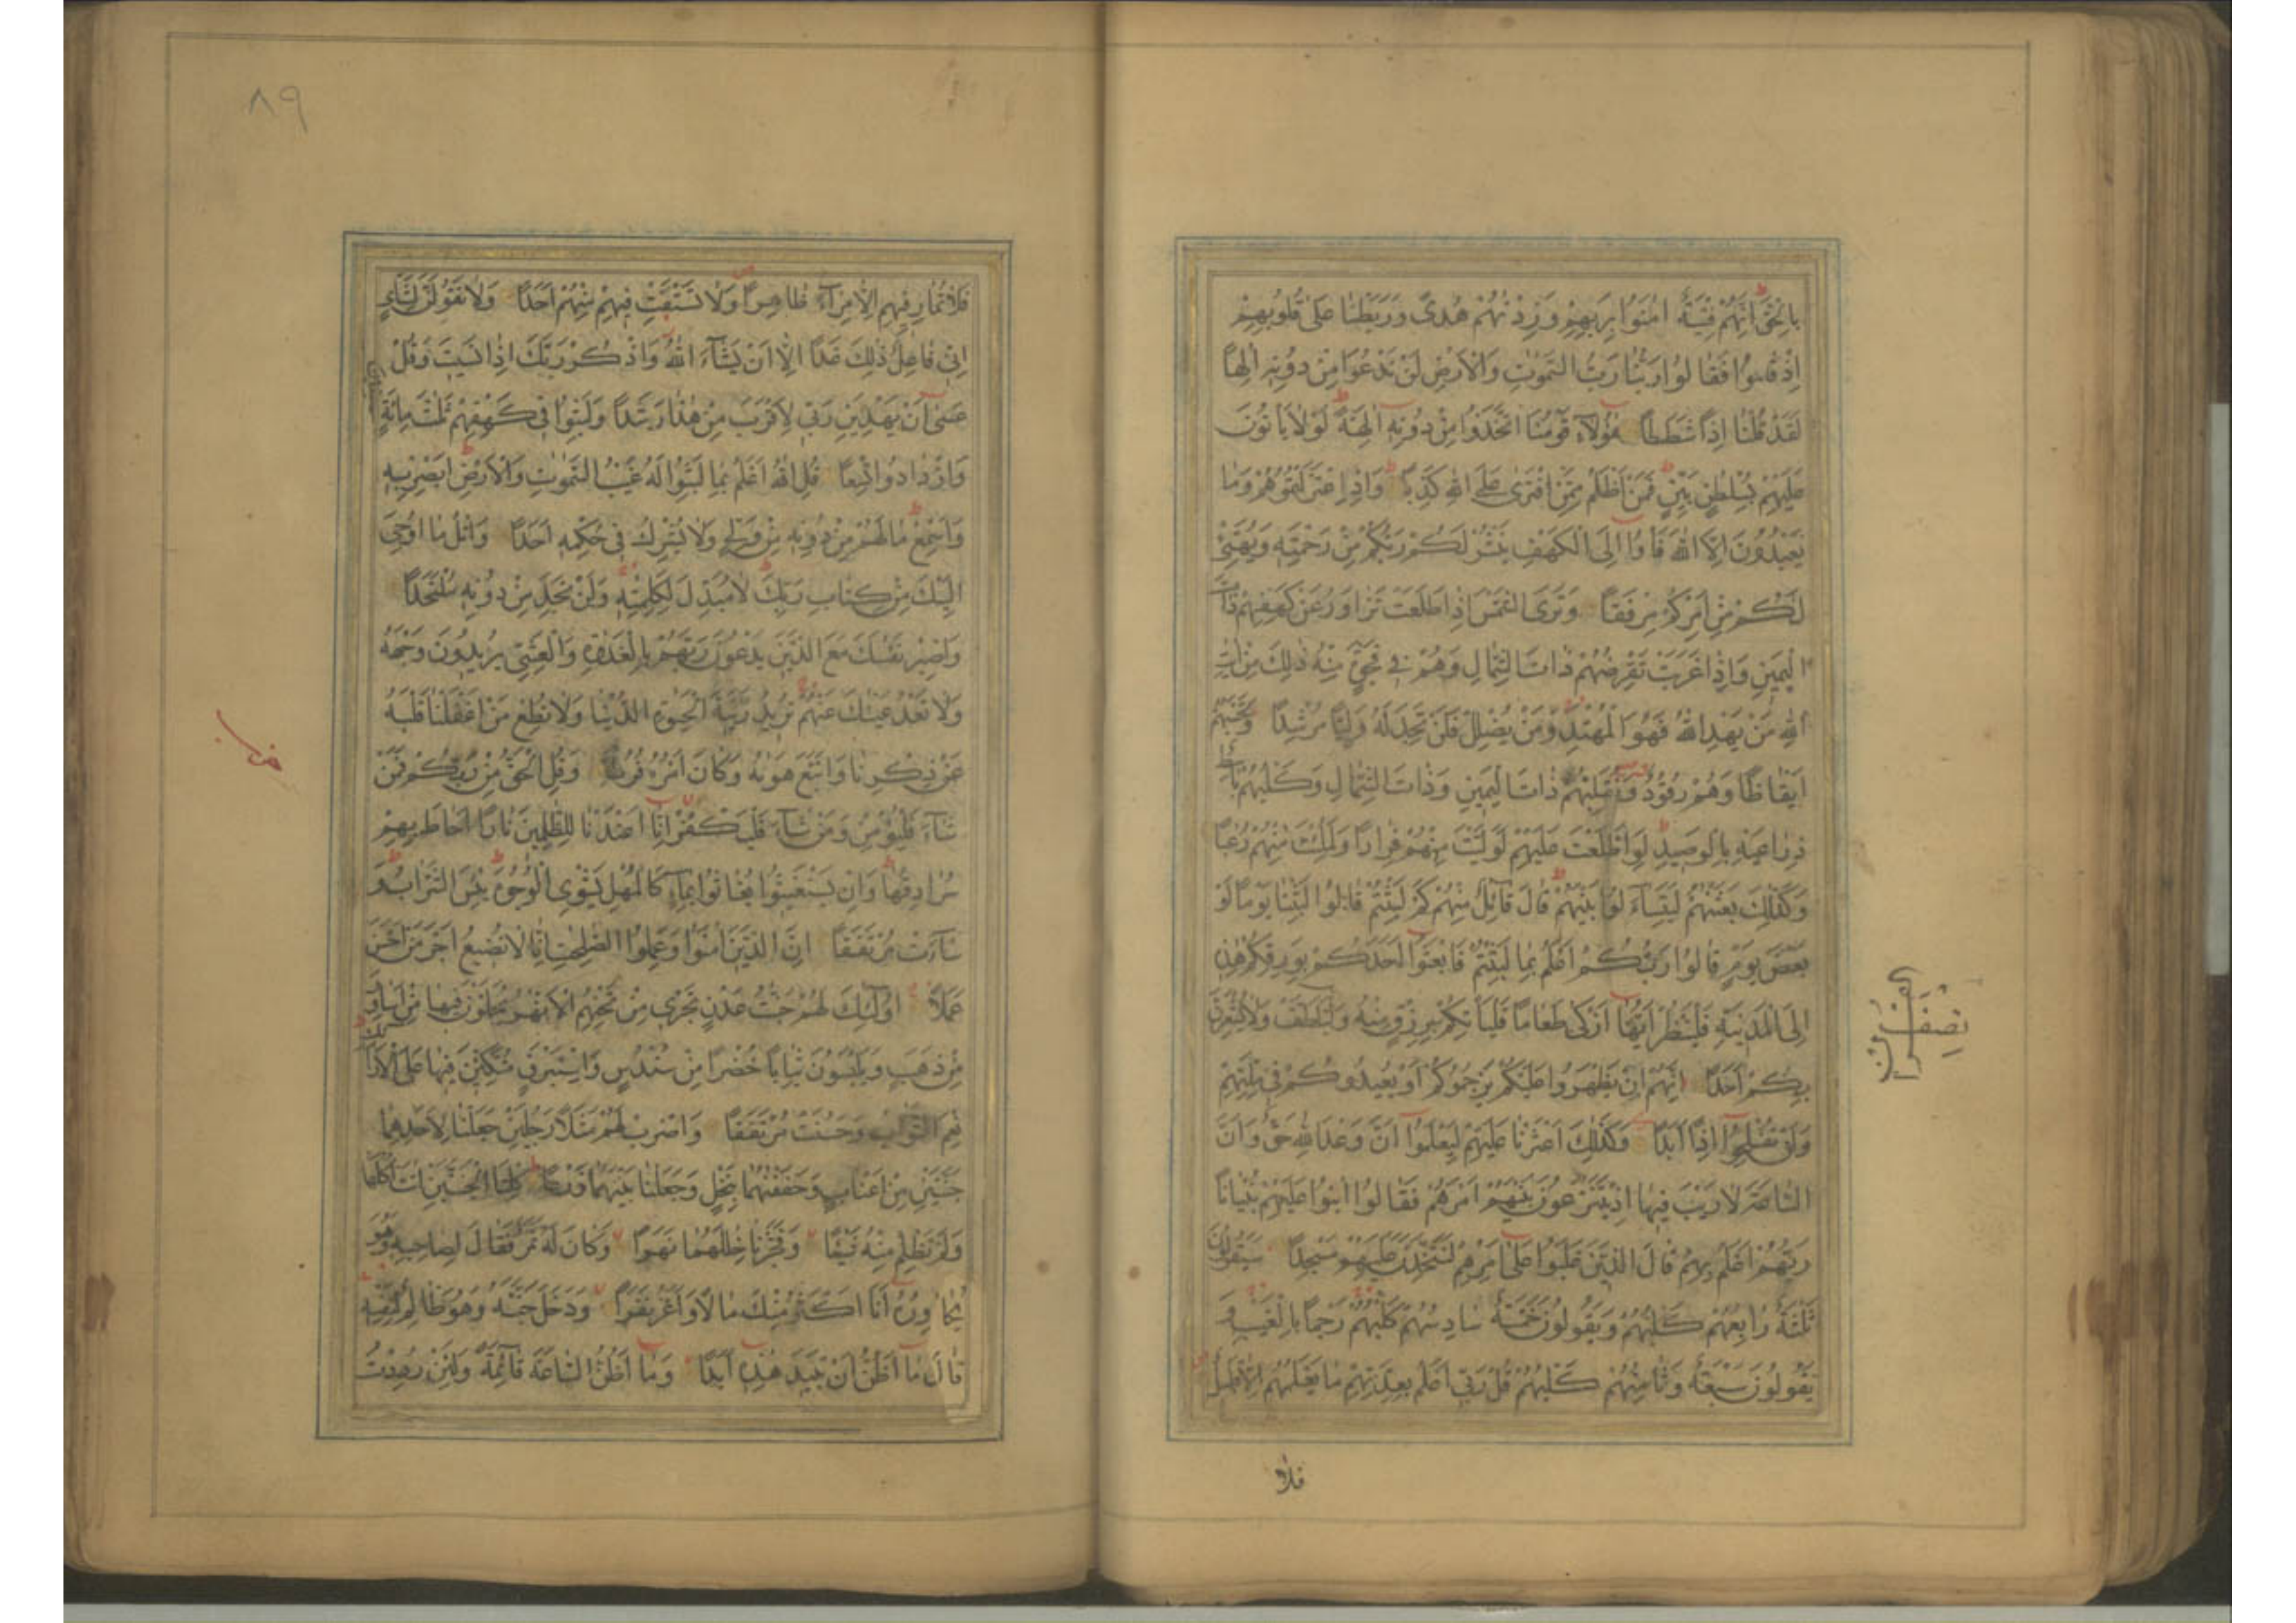 بِالْحَقِّ اِنَّهُمْ فِتْيَةٌ اٰمَنُوا بِرَبِّهِمْ وَزِدْنٰهُمْ هُدًى وَرَبَطْنَا عَلٰى قُلُوبِهِمْ
اِذْ قَامُوا فَقَالُوا رَبُّنَا رَبُّ السَّمٰوٰتِ وَالْاَرْضِ لَنْ نَدْعُوَا مِنْ دُونِهِ اِلٰهًا
لَقَدْ قُلْنَا اِذًا شَطَطًا هٰؤُلَاءِ قَوْمُنَا اتَّخَذُوا مِنْ دُونِهِ اٰلِهَةً لَوْلَا يَاْتُونَ
عَلَيْهِمْ بِسُلْطٰنٍ بَيِّنٍ فَمَنْ اَظْلَمُ مِمَّنِ افْتَرٰى عَلَى اللّٰهِ كَذِبًا وَاِذِ اعْتَزَلْتُمُوهُمْ وَمَا
يَعْبُدُونَ اِلَّا اللّٰهَ فَاْوُا اِلَى الْكَهْفِ يَنْشُرْ لَكُمْ رَبُّكُمْ مِنْ رَحْمَتِهِ وَيُهَيِّئْ
لَكُمْ مِنْ اَمْرِكُمْ مِرْفَقًا وَتَرَى الشَّمْسَ اِذَا طَلَعَتْ تَزَاوَرُ عَنْ كَهْفِهِمْ ذَاتَ
الْيَمِينِ وَاِذَا غَرَبَتْ تَقْرِضُهُمْ ذَاتَ الشِّمَالِ وَهُمْ فِي فَجْوَةٍ مِنْهُ ذٰلِكَ مِنْ اٰيٰتِ
اللّٰهِ مَنْ يَهْدِ اللّٰهُ فَهُوَ الْمُهْتَدِ وَمَنْ يُضْلِلْ فَلَنْ تَجِدَ لَهُ وَلِيًّا مُرْشِدًا وَتَحْسَبُهُمْ
اَيْقَاظًا وَهُمْ رُقُودٌ وَنُقَلِّبُهُمْ ذَاتَ الْيَمِينِ وَذَاتَ الشِّمَالِ وَكَلْبُهُمْ بَاسِطٌ
ذِرَاعَيْهِ بِالْوَصِيدِ لَوِ اطَّلَعْتَ عَلَيْهِمْ لَوَلَّيْتَ مِنْهُمْ فِرَارًا وَلَمُلِئْتَ مِنْهُمْ رُعْبًا
وَكَذٰلِكَ بَعَثْنٰهُمْ لِيَتَسَاءَلُوا بَيْنَهُمْ قَالَ قَائِلٌ مِنْهُمْ كَمْ لَبِثْتُمْ قَالُوا لَبِثْنَا يَوْمًا اَوْ
بَعْضَ يَوْمٍ قَالُوا رَبُّكُمْ اَعْلَمُ بِمَا لَبِثْتُمْ فَابْعَثُوا اَحَدَكُمْ بِوَرِقِكُمْ هٰذِهِ
اِلَى الْمَدِينَةِ فَلْيَنْظُرْ اَيُّهَا اَزْكٰى طَعَامًا فَلْيَاْتِكُمْ بِرِزْقٍ مِنْهُ وَلْيَتَلَطَّفْ وَلَا يُشْعِرَنَّ
بِكُمْ اَحَدًا اِنَّهُمْ اِنْ يَظْهَرُوا عَلَيْكُمْ يَرْجُمُوكُمْ اَوْ يُعِيدُوكُمْ فِي مِلَّتِهِمْ
وَلَنْ تُفْلِحُوا اِذًا اَبَدًا وَكَذٰلِكَ اَعْثَرْنَا عَلَيْهِمْ لِيَعْلَمُوا اَنَّ وَعْدَ اللّٰهِ حَقٌّ وَاَنَّ
السَّاعَةَ لَا رَيْبَ فِيهَا اِذْ يَتَنٰزَعُونَ بَيْنَهُمْ اَمْرَهُمْ فَقَالُوا ابْنُوا عَلَيْهِمْ بُنْيَانًا
رَبُّهُمْ اَعْلَمُ بِهِمْ قَالَ الَّذِينَ غَلَبُوا عَلٰى اَمْرِهِمْ لَنَتَّخِذَنَّ عَلَيْهِمْ مَسْجِدًا سَيَقُولُونَ
ثَلٰثَةٌ رَابِعُهُمْ كَلْبُهُمْ وَيَقُولُونَ خَمْسَةٌ سَادِسُهُمْ كَلْبُهُمْ رَجْمًا بِالْغَيْبِ وَ
يَقُولُونَ سَبْعَةٌ وَثَامِنُهُمْ كَلْبُهُمْ قُلْ رَبِّي اَعْلَمُ بِعِدَّتِهِمْ مَا يَعْلَمُهُمْ اِلَّا قَلِيلٌ
فلا
نصف القرآن
٨٩
فَلَا تُمَارِ فِيهِمْ اِلَّا مِرَاءً ظَاهِرًا وَلَا تَسْتَفْتِ فِيهِمْ مِنْهُمْ اَحَدًا وَلَا تَقُولَنَّ لِشَايْءٍ
اِنِّي فَاعِلٌ ذٰلِكَ غَدًا اِلَّا اَنْ يَشَاءَ اللّٰهُ وَاذْكُرْ رَبَّكَ اِذَا نَسِيتَ وَقُلْ
عَسٰى اَنْ يَهْدِيَنِ رَبِّي لِاَقْرَبَ مِنْ هٰذَا رَشَدًا وَلَبِثُوا فِي كَهْفِهِمْ ثَلٰثَ مِائَةٍ
وَازْدَادُوا تِسْعًا قُلِ اللّٰهُ اَعْلَمُ بِمَا لَبِثُوا لَهُ غَيْبُ السَّمٰوٰتِ وَالْاَرْضِ اَبْصِرْ بِهِ
وَاَسْمِعْ مَا لَهُمْ مِنْ دُونِهِ مِنْ وَلِيٍّ وَلَا يُشْرِكُ فِي حُكْمِهِ اَحَدًا وَاتْلُ مَا اُوحِيَ
اِلَيْكَ مِنْ كِتَابِ رَبِّكَ لَا مُبَدِّلَ لِكَلِمٰتِهِ وَلَنْ تَجِدَ مِنْ دُونِهِ مُلْتَحَدًا
وَاصْبِرْ نَفْسَكَ مَعَ الَّذِينَ يَدْعُونَ رَبَّهُمْ بِالْغَدٰوةِ وَالْعَشِيِّ يُرِيدُونَ وَجْهَهُ
وَلَا تَعْدُ عَيْنَاكَ عَنْهُمْ تُرِيدُ زِينَةَ الْحَيٰوةِ الدُّنْيَا وَلَا تُطِعْ مَنْ اَغْفَلْنَا قَلْبَهُ
عَنْ ذِكْرِنَا وَاتَّبَعَ هَوٰىهُ وَكَانَ اَمْرُهُ فُرُطًا وَقُلِ الْحَقُّ مِنْ رَبِّكُمْ فَمَنْ
شَاءَ فَلْيُؤْمِنْ وَمَنْ شَاءَ فَلْيَكْفُرْ اِنَّا اَعْتَدْنَا لِلظّٰلِمِينَ نَارًا اَحَاطَ بِهِمْ
سُرَادِقُهَا وَاِنْ يَسْتَغِيثُوا يُغَاثُوا بِمَاءٍ كَالْمُهْلِ يَشْوِي الْوُجُوهَ بِئْسَ الشَّرَابُ وَ
سَاءَتْ مُرْتَفَقًا اِنَّ الَّذِينَ اٰمَنُوا وَعَمِلُوا الصّٰلِحٰتِ اِنَّا لَا نُضِيعُ اَجْرَ مَنْ اَحْسَنَ
عَمَلًا اُولٰئِكَ لَهُمْ جَنّٰتُ عَدْنٍ تَجْرِي مِنْ تَحْتِهِمُ الْاَنْهٰرُ يُحَلَّوْنَ فِيهَا مِنْ اَسَاوِرَ
مِنْ ذَهَبٍ وَيَلْبَسُونَ ثِيَابًا خُضْرًا مِنْ سُنْدُسٍ وَاِسْتَبْرَقٍ مُتَّكِئِينَ فِيهَا عَلَى الْاَرَائِكِ
نِعْمَ الثَّوَابُ وَحَسُنَتْ مُرْتَفَقًا وَاضْرِبْ لَهُمْ مَثَلًا رَجُلَيْنِ جَعَلْنَا لِاَحَدِهِمَا
جَنَّتَيْنِ مِنْ اَعْنَابٍ وَحَفَفْنٰهُمَا بِنَخْلٍ وَجَعَلْنَا بَيْنَهُمَا زَرْعًا كِلْتَا الْجَنَّتَيْنِ اٰتَتْ اُكُلَهَا
وَلَمْ تَظْلِمْ مِنْهُ شَيْئًا وَفَجَّرْنَا خِلٰلَهُمَا نَهَرًا وَكَانَ لَهُ ثَمَرٌ فَقَالَ لِصَاحِبِهِ وَهُوَ
يُحَاوِرُهُ اَنَا اَكْثَرُ مِنْكَ مَالًا وَاَعَزُّ نَفَرًا وَدَخَلَ جَنَّتَهُ وَهُوَ ظَالِمٌ لِنَفْسِهِ
قَالَ مَا اَظُنُّ اَنْ تَبِيدَ هٰذِهِ اَبَدًا وَمَا اَظُنُّ السَّاعَةَ قَائِمَةً وَلَئِنْ رُدِدْتُ